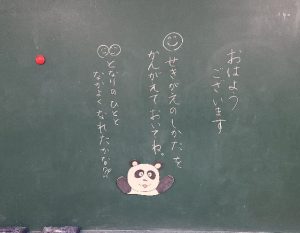 おはよう
ございます
せきがえのしかたを
かんがえておいてね。
となりのひとと
なかよくなれたかな??